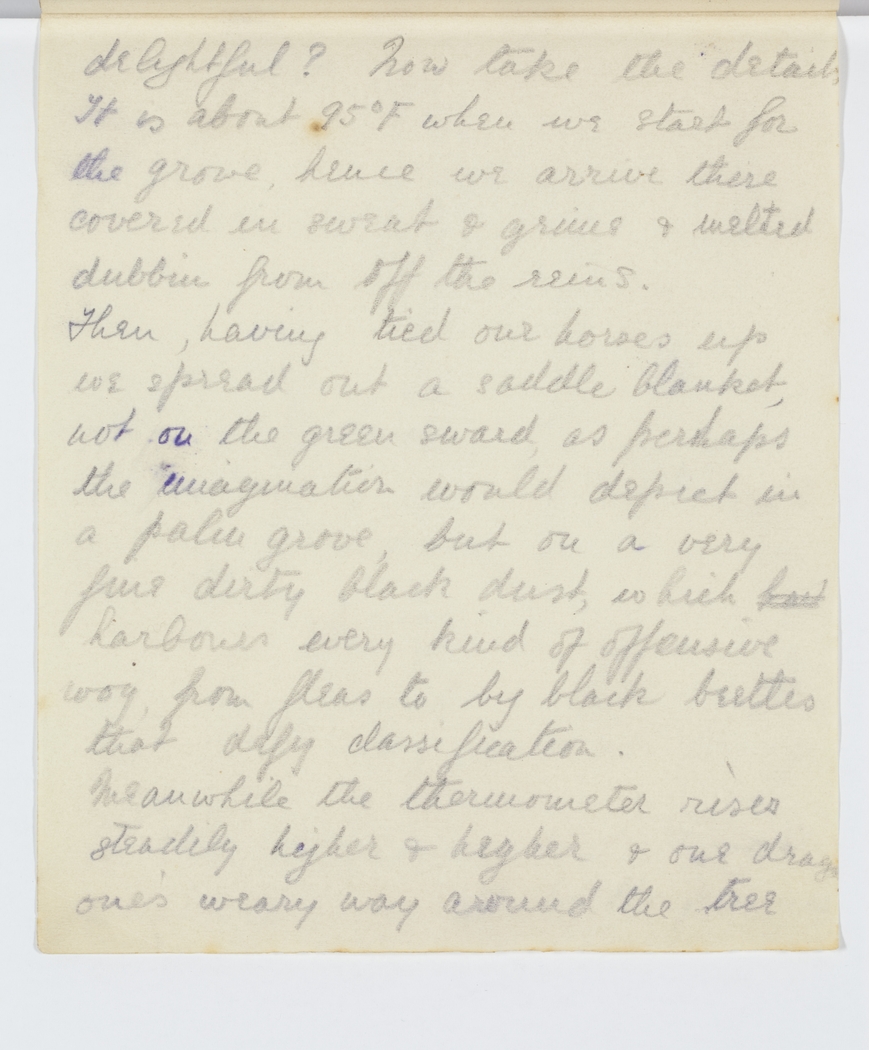 delightful? Now take the details
It is about 95°F when we start for
the grove, hence we arrive there
covered in sweat & grime & melted
dubbin from off the reins.
Then, having tied our horses up
we spread out a saddle blanket,
not on the green sward, as perhaps
the imagination would depict in
a palm grove, but on a very
fine dirty black dust, which
harbours every kind of offensive
wog, from fleas to by black beetles
that defy classification.
Meanwhile the thermometer rises
steadily higher & higher & one drags
one's weary way around the tree